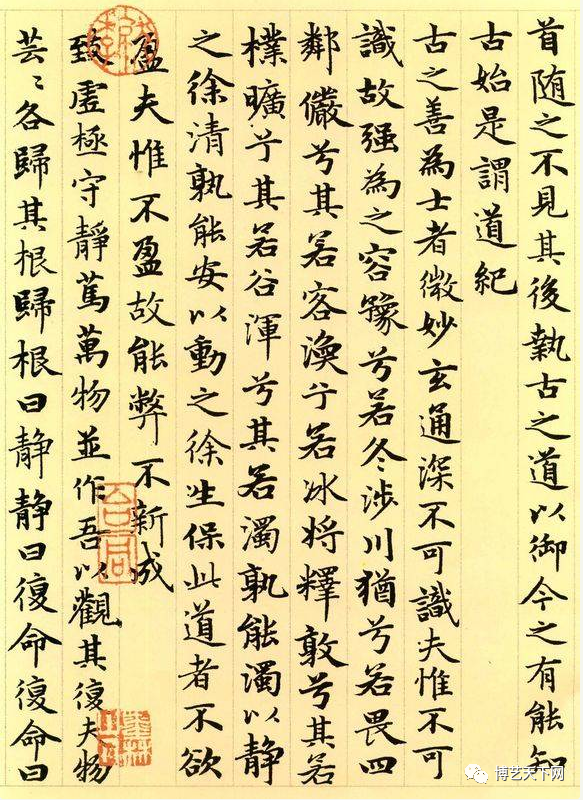 首随之不見其後執古之道以御今之有能知
古始是謂道紀
古之善為士者微妙玄通深不可識夫惟不可
識故强為之容豫兮若冬涉川猶兮若畏四
鄰儼兮其若客渙兮若冰将釋敦兮其若
樸曠兮其若谷渾兮其若濁孰能濁以静
之徐清孰能安以動之徐生保此道者不欲
盈夫惟不盈故能弊不新成
致虛極守靜篤萬物並作吾以觀其復夫物
芸〻各歸其根歸根曰静静曰復命復命曰
合同
博艺天下网